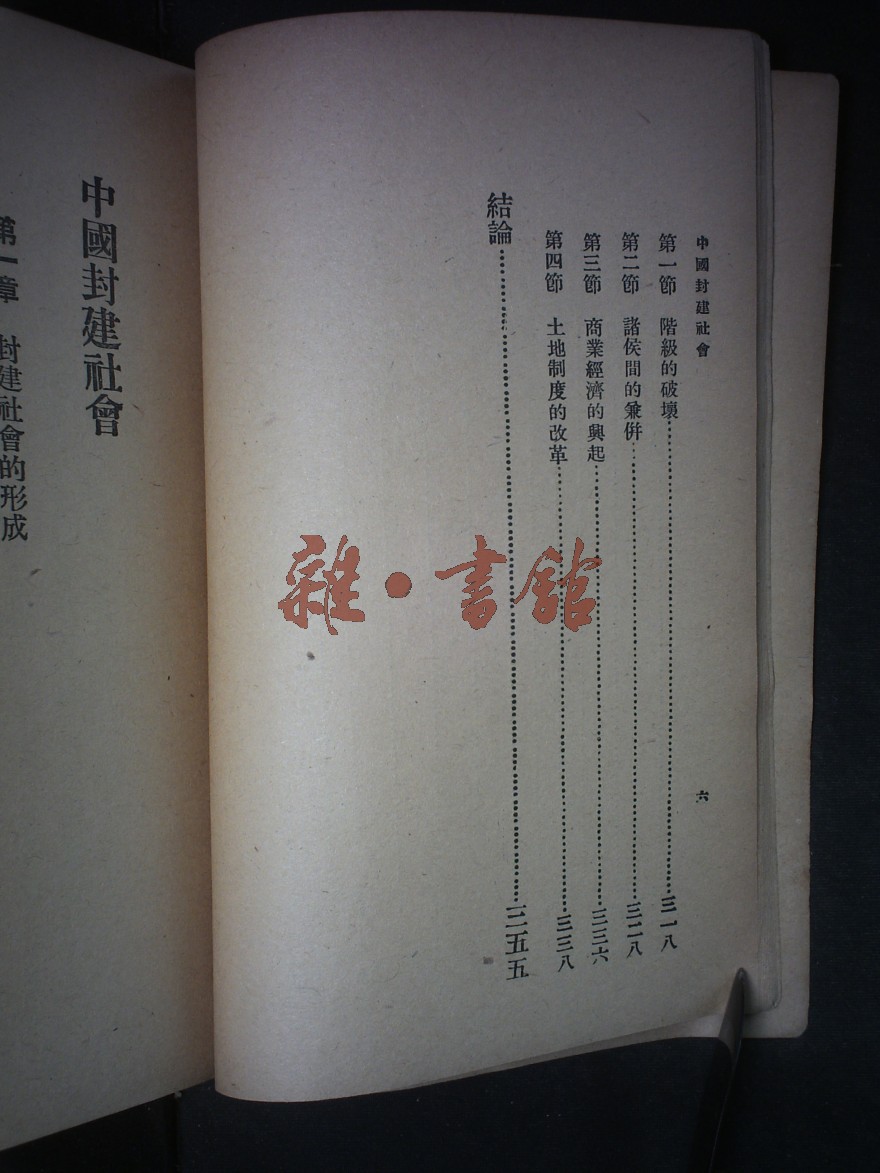 中國封建社會
六
第一節 階級的破壞……三一八
第二節 諸侯間的兼併……三二八
第三節 商業經濟的興起……三三六
第四節 土地制度的改革……三三八
結論……三五五
中國封建社會
第一章 封建社會的形成
雜·書館